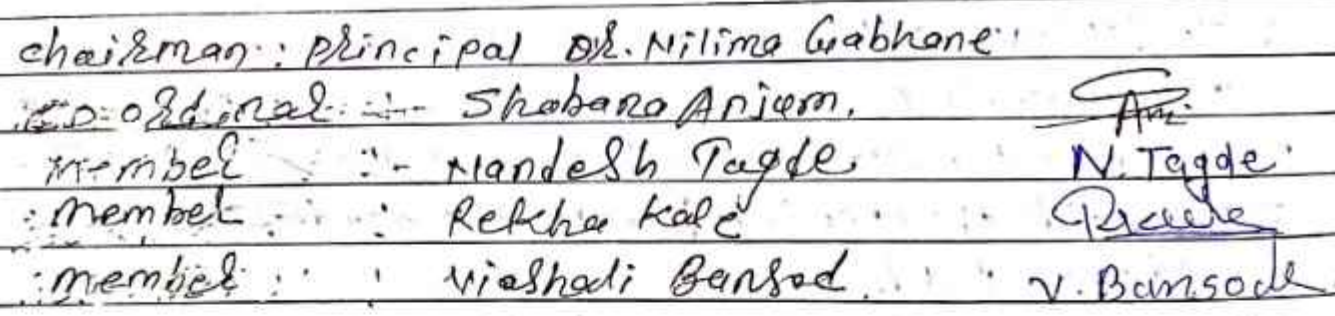 Chairman : Principal Dr. Nilima Gabhane
Co-ordinar :- Shabana Anjum.
member :- Nandesh Tagde N. Tagde
member : Rekha Kale
member : Viashadi Bansod V. Bansode